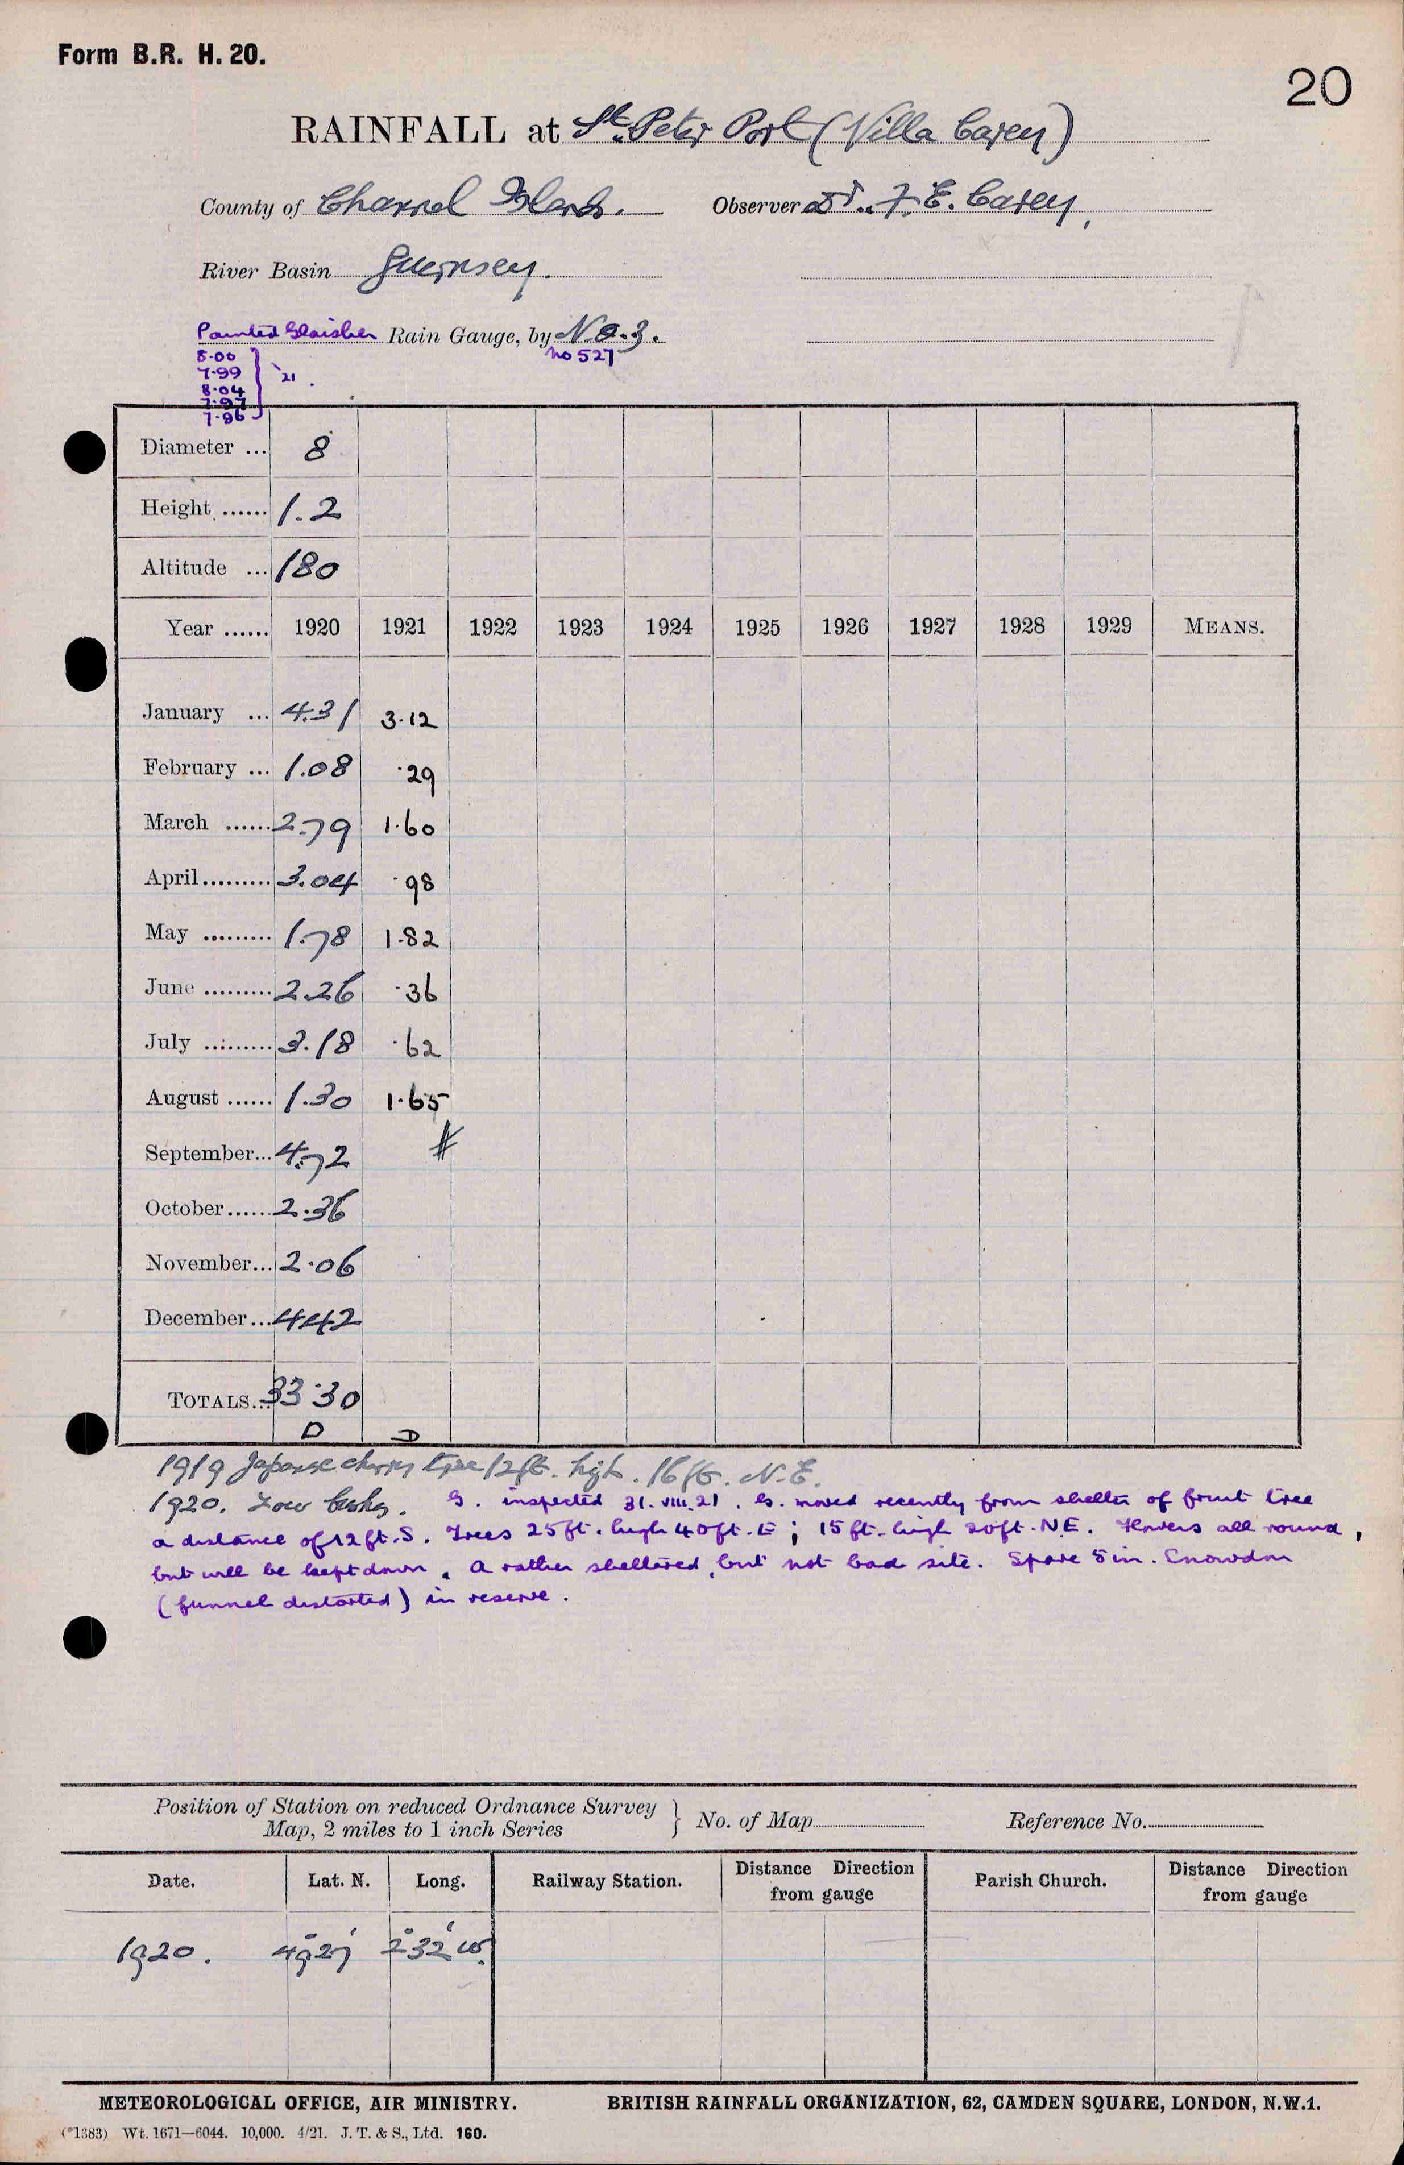 Form B.R. H. 20.
20
RAINFALL at St. Peter Port (Villa Carey)
County of Channel Islands. Observer Dr. F. E. Carey,
River Basin Guernsey.
Painted Glaisher Rain Gauge, by No. 3.
No 527
8.00
7.99
8.04
7.97
7.96
'21
Diameter ... 8
Height ...... 1.2
Altitude ... 180
Year ...... 1920 1921 1922 1923 1924 1925 1926 1927 1928 1929 MEANS.
January ... 4.31 3.12
February ... 1.08 .29
March ...... 2.79 1.60
April ......... 3.04 .98
May ......... 1.78 1.82
June ......... 2.26 .36
July ......... 3.18 .62
August ...... 1.30 1.65
September... 4.72 #
October...... 2.36
November... 2.06
December... 4.42
TOTALS... 33.30
D D
1919 Japanese cherry tree 12ft. high. 16ft. N.E.
1920. Low bushes. G. inspected 31.VIII.21. G. moved recently from shelter of fruit tree
a distance of 12 ft. S. Trees 25ft. high 40ft. E; 15ft. high 20ft. N.E. Flowers all round,
but will be kept down. A rather sheltered, but not bad site. Spare 5 in. Snowdon
(funnel distorted) in reserve.
Position of Station on reduced Ordnance Survey
Map, 2 miles to 1 inch Series } No. of Map Reference No.
Date. Lat. N. Long. Railway Station. Distance Direction from gauge Parish Church. Distance Direction from gauge
1920. 49°27' 2°32' W.
METEOROLOGICAL OFFICE, AIR MINISTRY. BRITISH RAINFALL ORGANIZATION, 62, CAMDEN SQUARE, LONDON, N.W.1.
(*1383) Wt. 1671—6044. 10,000. 4/21. J. T. & S., Ltd. 160.